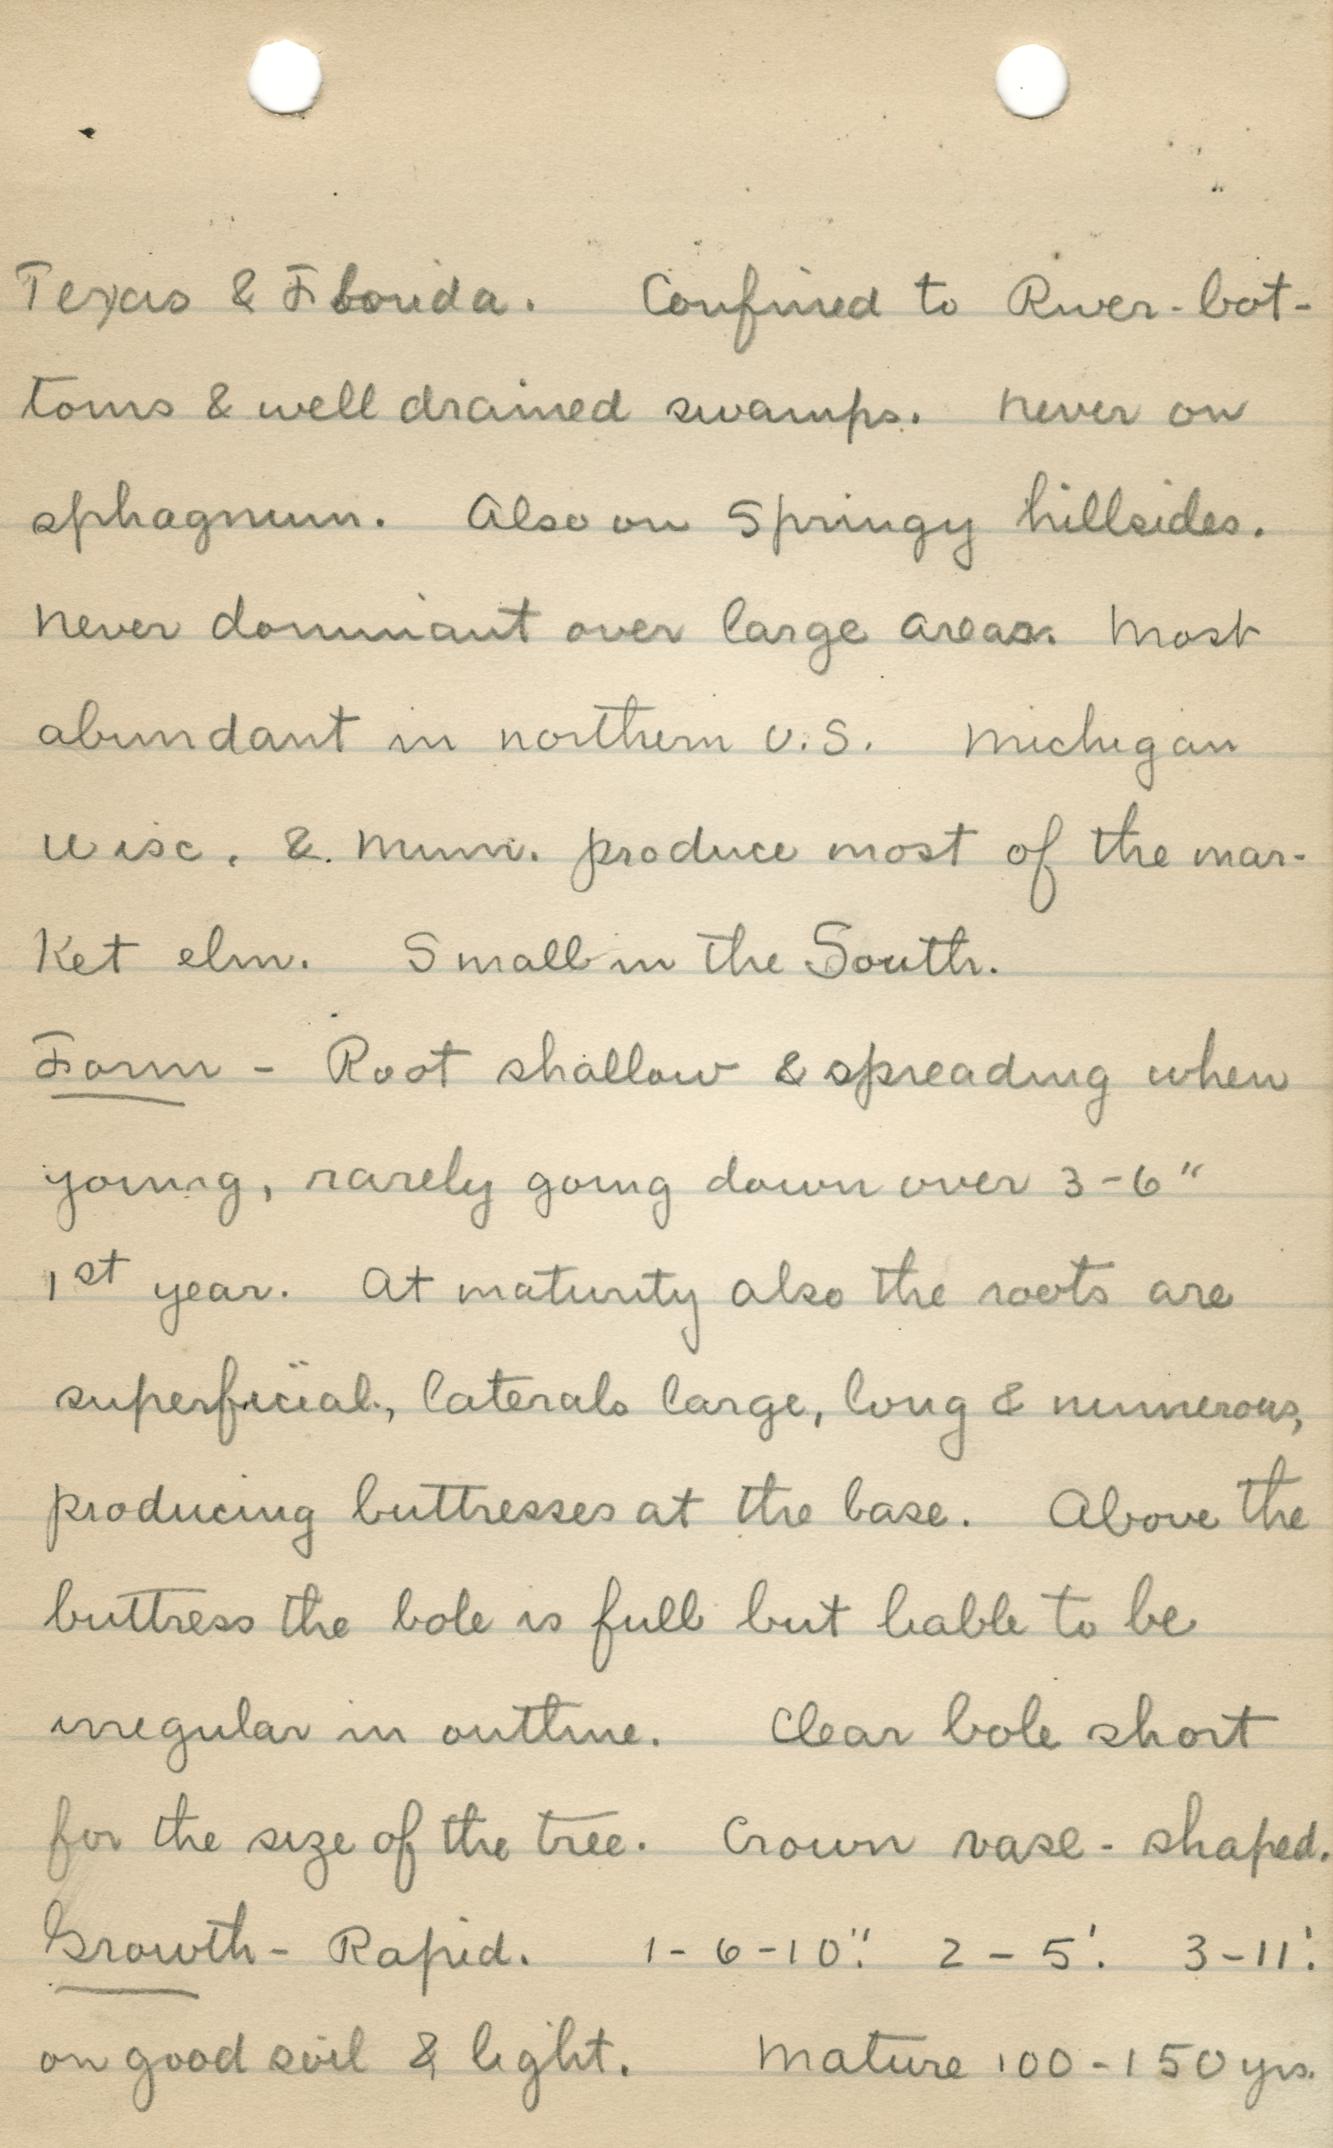 Texas & Florida. Confined to River-bot-
toms & well drained swamps. Never on
sphagnum. Also on springy hillsides.
Never dominant over large areas. Most
abundant in northern U.S. Michigan
Wisc. & Minn. produce most of the mar-
ket elm. Small in the South.
Form - Root shallow & spreading when
young, rarely going down over 3-6"
1st year. At maturity also the roots are
superficial, laterals large, long & numerous,
producing buttresses at the base. Above the
buttress the bole is full but liable to be
irregular in outline. Clear bole short
for the size of the tree. Crown vase-shaped.
Growth - Rapid. 1-6-10". 2-5'. 3-11'.
on good soil & light. Mature 100-150 yrs.